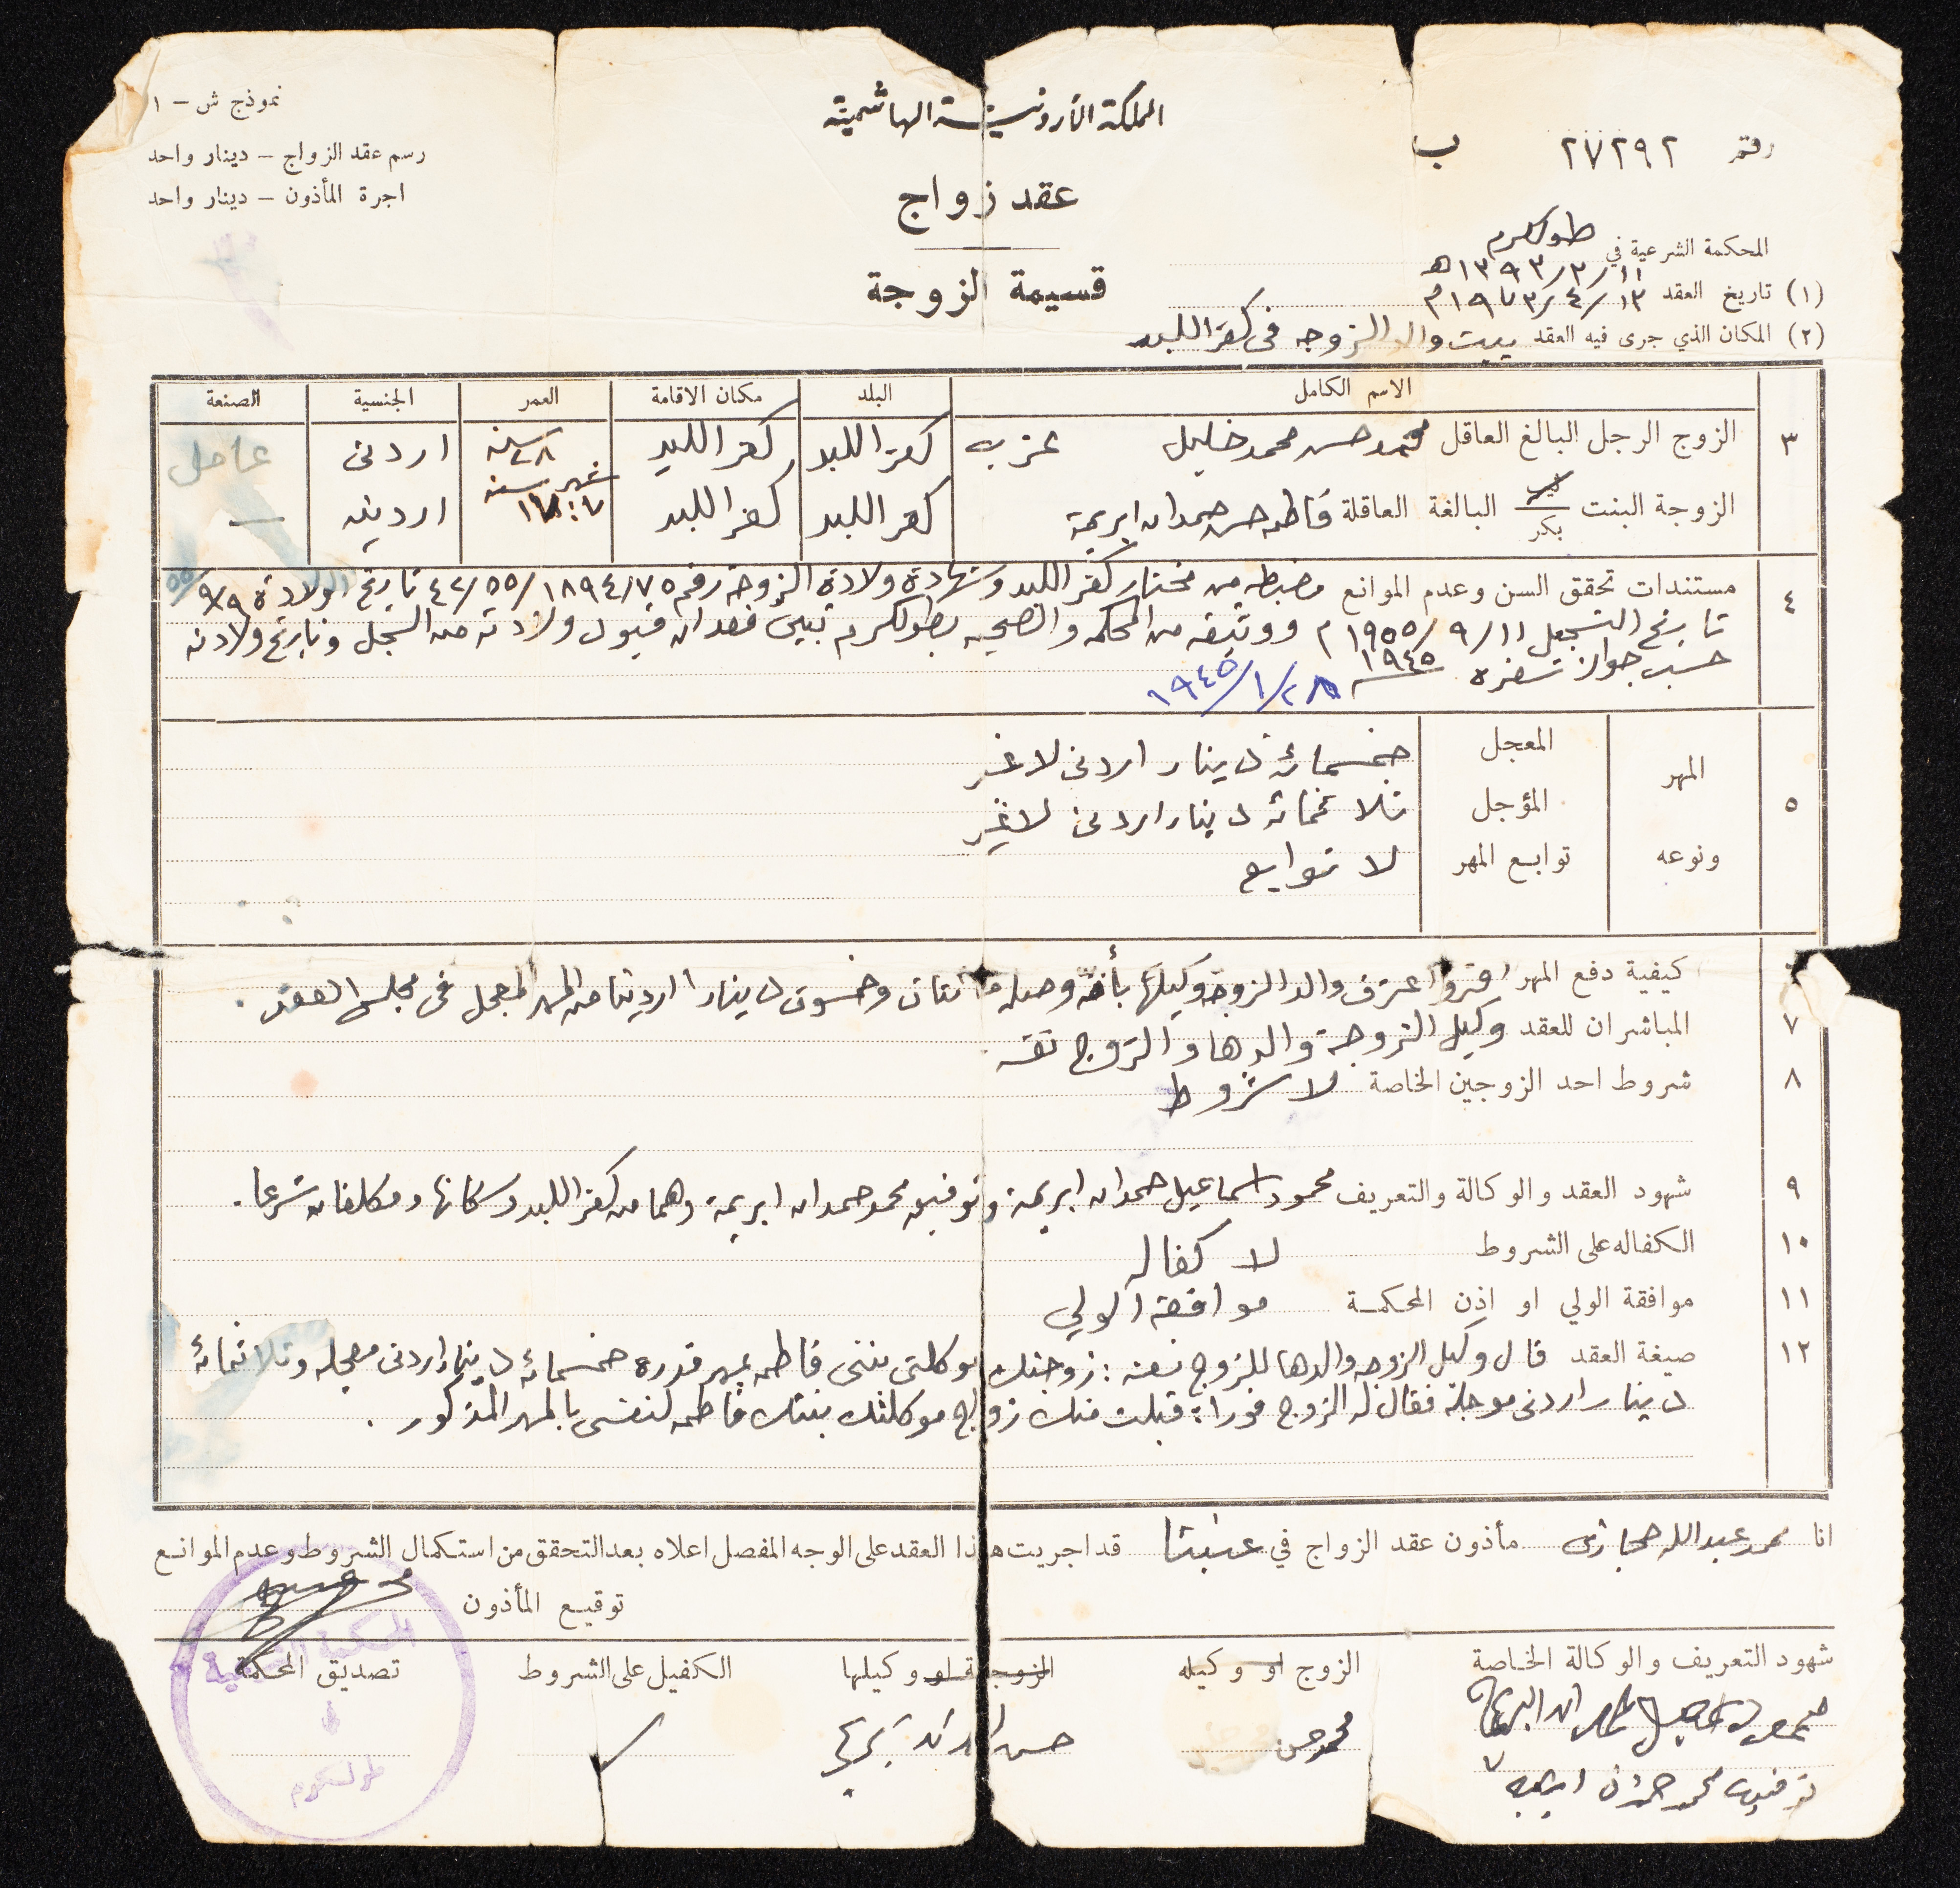 نموذج ش - ١
المملكة الأردنية الهاشمية
رقم ٢٧٢٩٢ ب
رسم عقد الزواج - دينار واحد
اجرة المأذون - دينار واحد
عقد زواج
المحكمة الشرعية في طولكرم
قسيمة الزوجة
(١) تاريخ العقد ١١/٣/١٣٩٣هـ
١٣/٤/١٩٧٣م
(٢) المكان الذي جرى فيه العقد ببيت والد الزوجه في كفر اللبد
الاسم الكامل البلد مكان الاقامة العمر الجنسية الصنعة
٣ الزوج الرجل البالغ العاقل محمد حسن محمد خليل عزب كفر اللبد كفر اللبد ٢٨ سنه اردني عامل
الزوجة البنت ثيب بكر البالغة العاقلة فاطمه حسن حمدان ابريمة كفر اللبد كفر اللبد شهر سنه ٧ : ١٧ اردنيه —
٤ مستندات تحقق السن وعدم الموانع مضبطه من مختار كفر اللبد وشهادة ولادة الزوجة رقم ١٨٩٤/٧٥/٥٥/٤٢ تاريخ الولادة ٩/٩/٥٥
تاريخ التسجيل ١١/٩/١٩٥٥م ووثيقه من المحكمه والصحيه بطولكرم تبين فقدان قيود ولادته من السجل وتاريخ ولادته
حسب جواز سفره ١٩٤٥ ٢٨/١/١٩٤٥
٥ المهر ونوعه
المعجل خمسمائة دينار اردني لا غير
المؤجل ثلاثمائة دينار اردني لا غير
توابع المهر لا توابع
كيفية دفع المهر اقر واعترف والد الزوجة وكيلها بأنه وصله مائتان وخمسون دينارا اردنيا من المهر المعجل في مجلس العقد.
٧ المباشران للعقد وكيل الزوجة والدها والزوج نفسه
٨ شروط احد الزوجين الخاصة لا شروط
٩ شهود العقد والوكالة والتعريف محمود اسماعيل حمدان ابريمة وتوفيق محمد حمدان ابريمة وهما من كفر اللبد وسكانها ومكلفان شرعا.
١٠ الكفاله على الشروط لا كفاله
١١ موافقة الولي او اذن المحكمة موافقة الولي
١٢ صيغة العقد قال وكيل الزوجه والدها للزوج نفسه : زوجتك موكلتي بنتي فاطمه بمهر قدره خمسمائه دينار اردني معجله وثلاثمائه
دينار اردني مؤجلة فقال له الزوج فورا : قبلت منك زواج موكلتك بنتك فاطمه لنفسي بالمهر المذكور .
انا محمد عبدالله حجازي مأذون عقد الزواج في عنبتا قد اجريت هذا العقد على الوجه المفصل اعلاه بعد التحقق من استكمال الشروط وعدم الموانع
توقيع المأذون
شهود التعريف والوكالة الخاصة الزوج او وكيله الزوجة او وكيلها الكفيل على الشروط تصديق المحكمة
محمد حسن
توفيق محمد حمدان ابريمه
المحكمة الشرعية
طولكرم